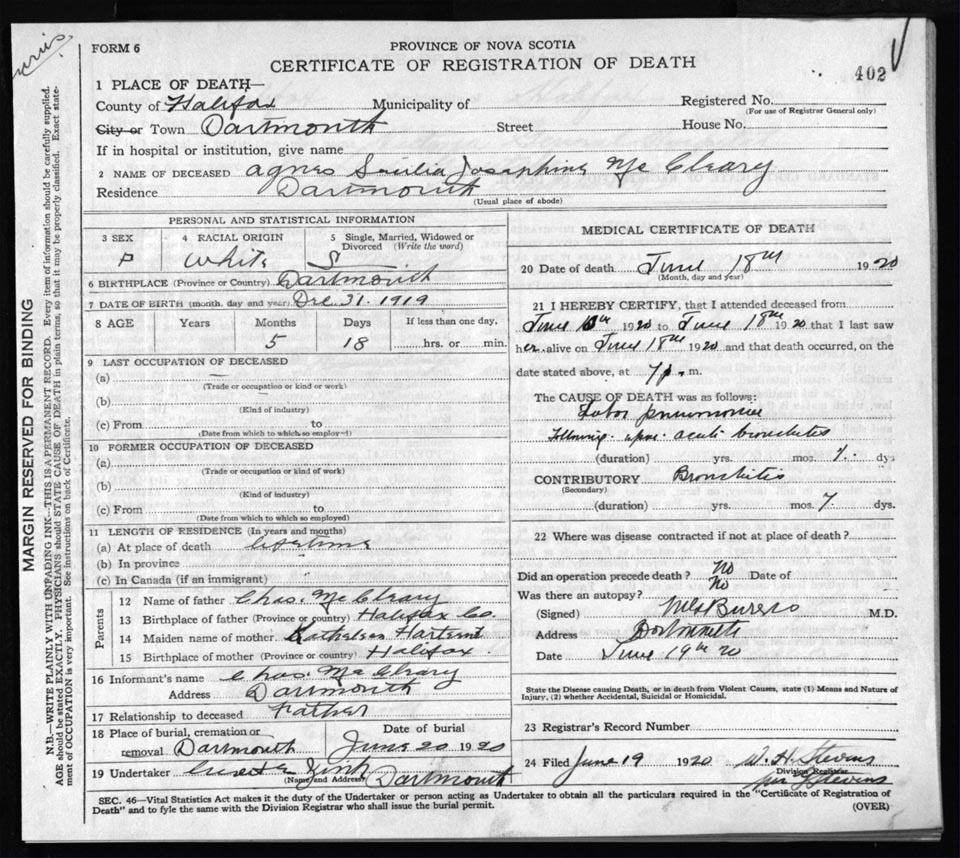 FORM 6
PROVINCE OF NOVA SCOTIA
CERTIFICATE OF REGISTRATION OF DEATH
402
1 PLACE OF DEATH—
County of Halifax Municipality of Registered No.
(For use of Registrar General only)
City or Town Dartmouth Street House No.
If in hospital or institution, give name
2 NAME OF DECEASED Agnes Josephine Mc Cleary
Residence Dartmouth
(Usual place of abode)
PERSONAL AND STATISTICAL INFORMATION
3 SEX 4 RACIAL ORIGIN 5 Single, Married, Widowed or Divorced (Write the word)
F White S
6 BIRTHPLACE (Province or Country) Dartmouth
7 DATE OF BIRTH (month, day and year) Dec 31. 1919
8 AGE Years Months Days If less than one day,
5 18 hrs. or min.
9 LAST OCCUPATION OF DECEASED
(a)
(Trade or occupation or kind or work)
(b)
(Kind of industry)
(c) From to
(Date from which to which so employed)
10 FORMER OCCUPATION OF DECEASED
(a)
(Trade or occupation or kind of work)
(b)
(Kind of industry)
(c) From to
(Date from which to which so employed)
11 LENGTH OF RESIDENCE (In years and months)
(a) At place of death lifetime
(b) In province
(c) In Canada (if an immigrant)
Parents
12 Name of father Chas. Mc Cleary
13 Birthplace of father (Province or country) Halifax Co
14 Maiden name of mother
15 Birthplace of mother (Province or country) Halifax.
16 Informant's name Chas. Mc Cleary
Address Dartmouth
17 Relationship to deceased Father
18 Place of burial, cremation or removal Dartmouth
Date of burial June 20 1920
19 Undertaker Zink Dartmouth
(Name and Address)
MEDICAL CERTIFICATE OF DEATH
20 Date of death June 18th 1920
(Month, day and year)
21 I HEREBY CERTIFY, that I attended deceased from
June 1920 to June 18th 1920 that I last saw
her alive on June 18th 1920 and that death occurred, on the
date stated above, at 7 p. m.
The CAUSE OF DEATH was as follows:
Lobar pneumonia
Following upon acute bronchitis
(duration) yrs. mos. 7. dys
CONTRIBUTORY Bronchitis
(Secondary)
(duration) yrs. mos. 7. dys.
22 Where was disease contracted if not at place of death?
Did an operation precede death? No Date of
Was there an autopsy? No
(Signed) M.D.
Address
Date June 19th 20
State the Disease causing Death, or in death from Violent Causes, state (1) Means and Nature of
Injury, (2) whether Accidental, Suicidal or Homicidal.
23 Registrar's Record Number
24 Filed June 19 1920 W. H. Stevens
Division Registrar
Stevens
SEC. 46—Vital Statistics Act makes it the duty of the Undertaker or person acting as Undertaker to obtain all the particulars required in the "Certificate of Registration of
Death" and to fyle the same with the Division Registrar who shall issue the burial permit.
(OVER)
MARGIN RESERVED FOR BINDING
N.B.—WRITE PLAINLY WITH UNFADING INK—THIS IS A PERMANENT RECORD. Every item of information should be carefully supplied.
AGE should be stated EXACTLY. PHYSICIANS should STATE CAUSE OF DEATH in plain terms, so that it may be properly classified. Exact state-
ment of OCCUPATION is very important. See instructions on back of Certificate.